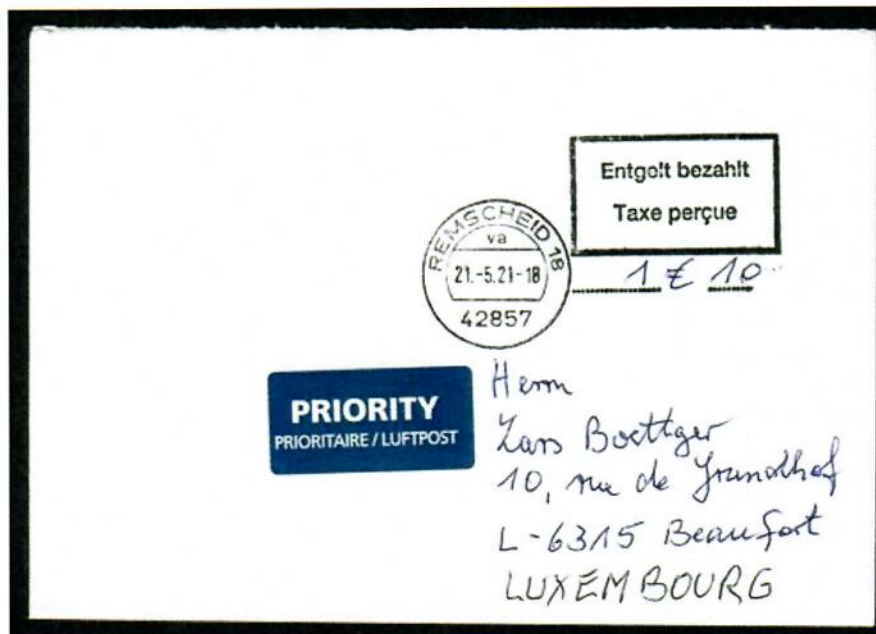 Entgelt bezahlt
Taxe perçue
REMSCHEID 18
va
21.-5.21-18
42857
1 € 10
PRIORITY
PRIORITAIRE / LUFTPOST
Herrn
Lars Boettger
10, rue de Grundhof
L-6315 Beaufort
LUXEMBOURG